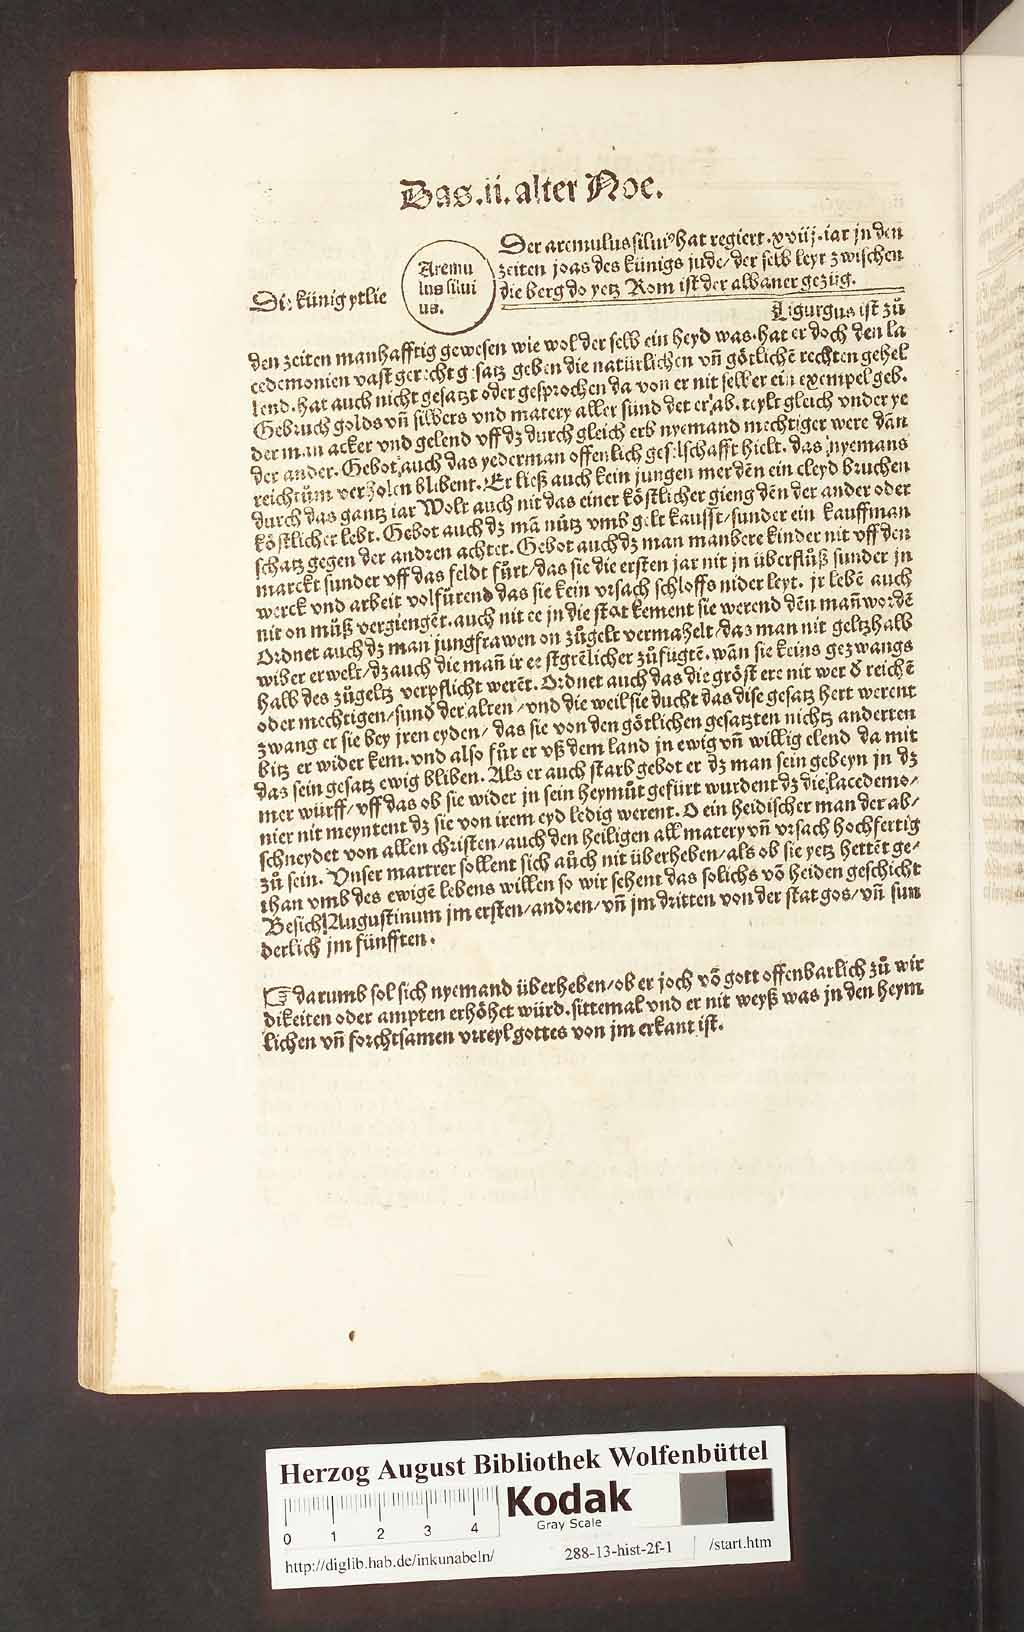 Das .ii. alter Noe.
Die künig ytlie
Aremu
lus silui
us.
Der aremulus siluiꝰ hat regiert .xviij. iar jn den
zeiten joas des künigs jude/ der selb leyt zwischen
die berg do yetz Rom ist der albaner gezüg.
Ligurgus ist zů
den zeiten manhafftig gewesen wie wol der selb ein heyd was. hat er doch den la
cedemonien vast gerecht gesatz geben die natürlichen vñ götlichẽ rechten gehel
lend. hat auch nicht gesatzt oder gesprochen da von er nit selber ein exempel geb.
Gebruch golds vñ silbers vnd matery aller sünd det er ab. teylt gleich vnder ye
der man acker vnd gelend vff dz durch gleich erb nyemand mechtiger were dañ
der ander. Gebot auch das yederman offenlich geselschafft hielt. das nyemans
reichtům verholen blibent. Er ließ auch kein jungen mer dẽn ein cleyd bruchen
durch das gantz iar Wolt auch nit das einer köstlicher gieng dẽn der ander oder
köstlicher lebt. Gebot auch dz mã nütz vmb gelt kaufft/ sunder ein kauffman
schatz gegen der andren achtet. Gebot auch dz man manbere kinder nit vff den
marckt sunder vff das feldt fůrt/ das sie die ersten jar nit jn überflůß sunder jn
werck vnd arbeit volfürend das sie kein vrsach schloffs nider leyt. jr lebẽ auch
nit on můß vergiengẽt. auch nit ee jn die stat kement sie werend dẽn mañ wordẽ
Ordnet auch dz man jungfrawen on zůgelt vermahelt/ das man nit geltzhalb
wiber erwelt/ dz auch die mañ ir ee strẽlicher zůfugtẽ. wãn sie keins gezwangs
halb des zůgeltz verpflicht werẽt. Ordnet auch das die gröst ere nit wer ď reichẽ
oder mechtigen/ sund der alten/ vnd die weil sie ducht das dise gesatz hert werent
zwang er sie bey jren eyden/ das sie von den götlichen gesatzten nichtz anderten
bitz er wider kem. vnd also für er vß dem land jn ewig vñ willig elend da mit
das sein gesatz ewig bliben. Als er auch starb gebot er dz man sein gebeyn jn dz
mer würff/ vff das ob sie wider jn sein heymůt gefürt wurdent dz die lacedemo/
nier nit meyntent dz sie von irem eyd ledig werent. O ein heidischer man der ab/
schneydet von allen christen/ auch den heiligen all matery vñ vrsach hochfertig
zů sein. Vnser martrer sollent sich aůch nit überheben/ als ob sie yetz hettẽt ge/
than vmb des ewigẽ lebens willen so wir sehent das solichs võ heiden geschicht
Besich Augustinum jm ersten/ andren/ vñ jm dritten von der stat gos/ vñ sun
derlich jm fünfften.
☞ darumb sol sich nyemand überheben/ ob er joch võ gott offenbarlich zů wir
dikeiten oder ampten erhöhet würd. sittemal vnd er nit weyß was jn den heym
lichen vñ forchtsamen vrteyl gottes von jm erkant ist.
Herzog August Bibliothek Wolfenbüttel
Kodak
Gray Scale
0 1 2 3 4
http://diglib.hab.de/inkunabeln/ 288-13-hist-2f-1 /start.htm